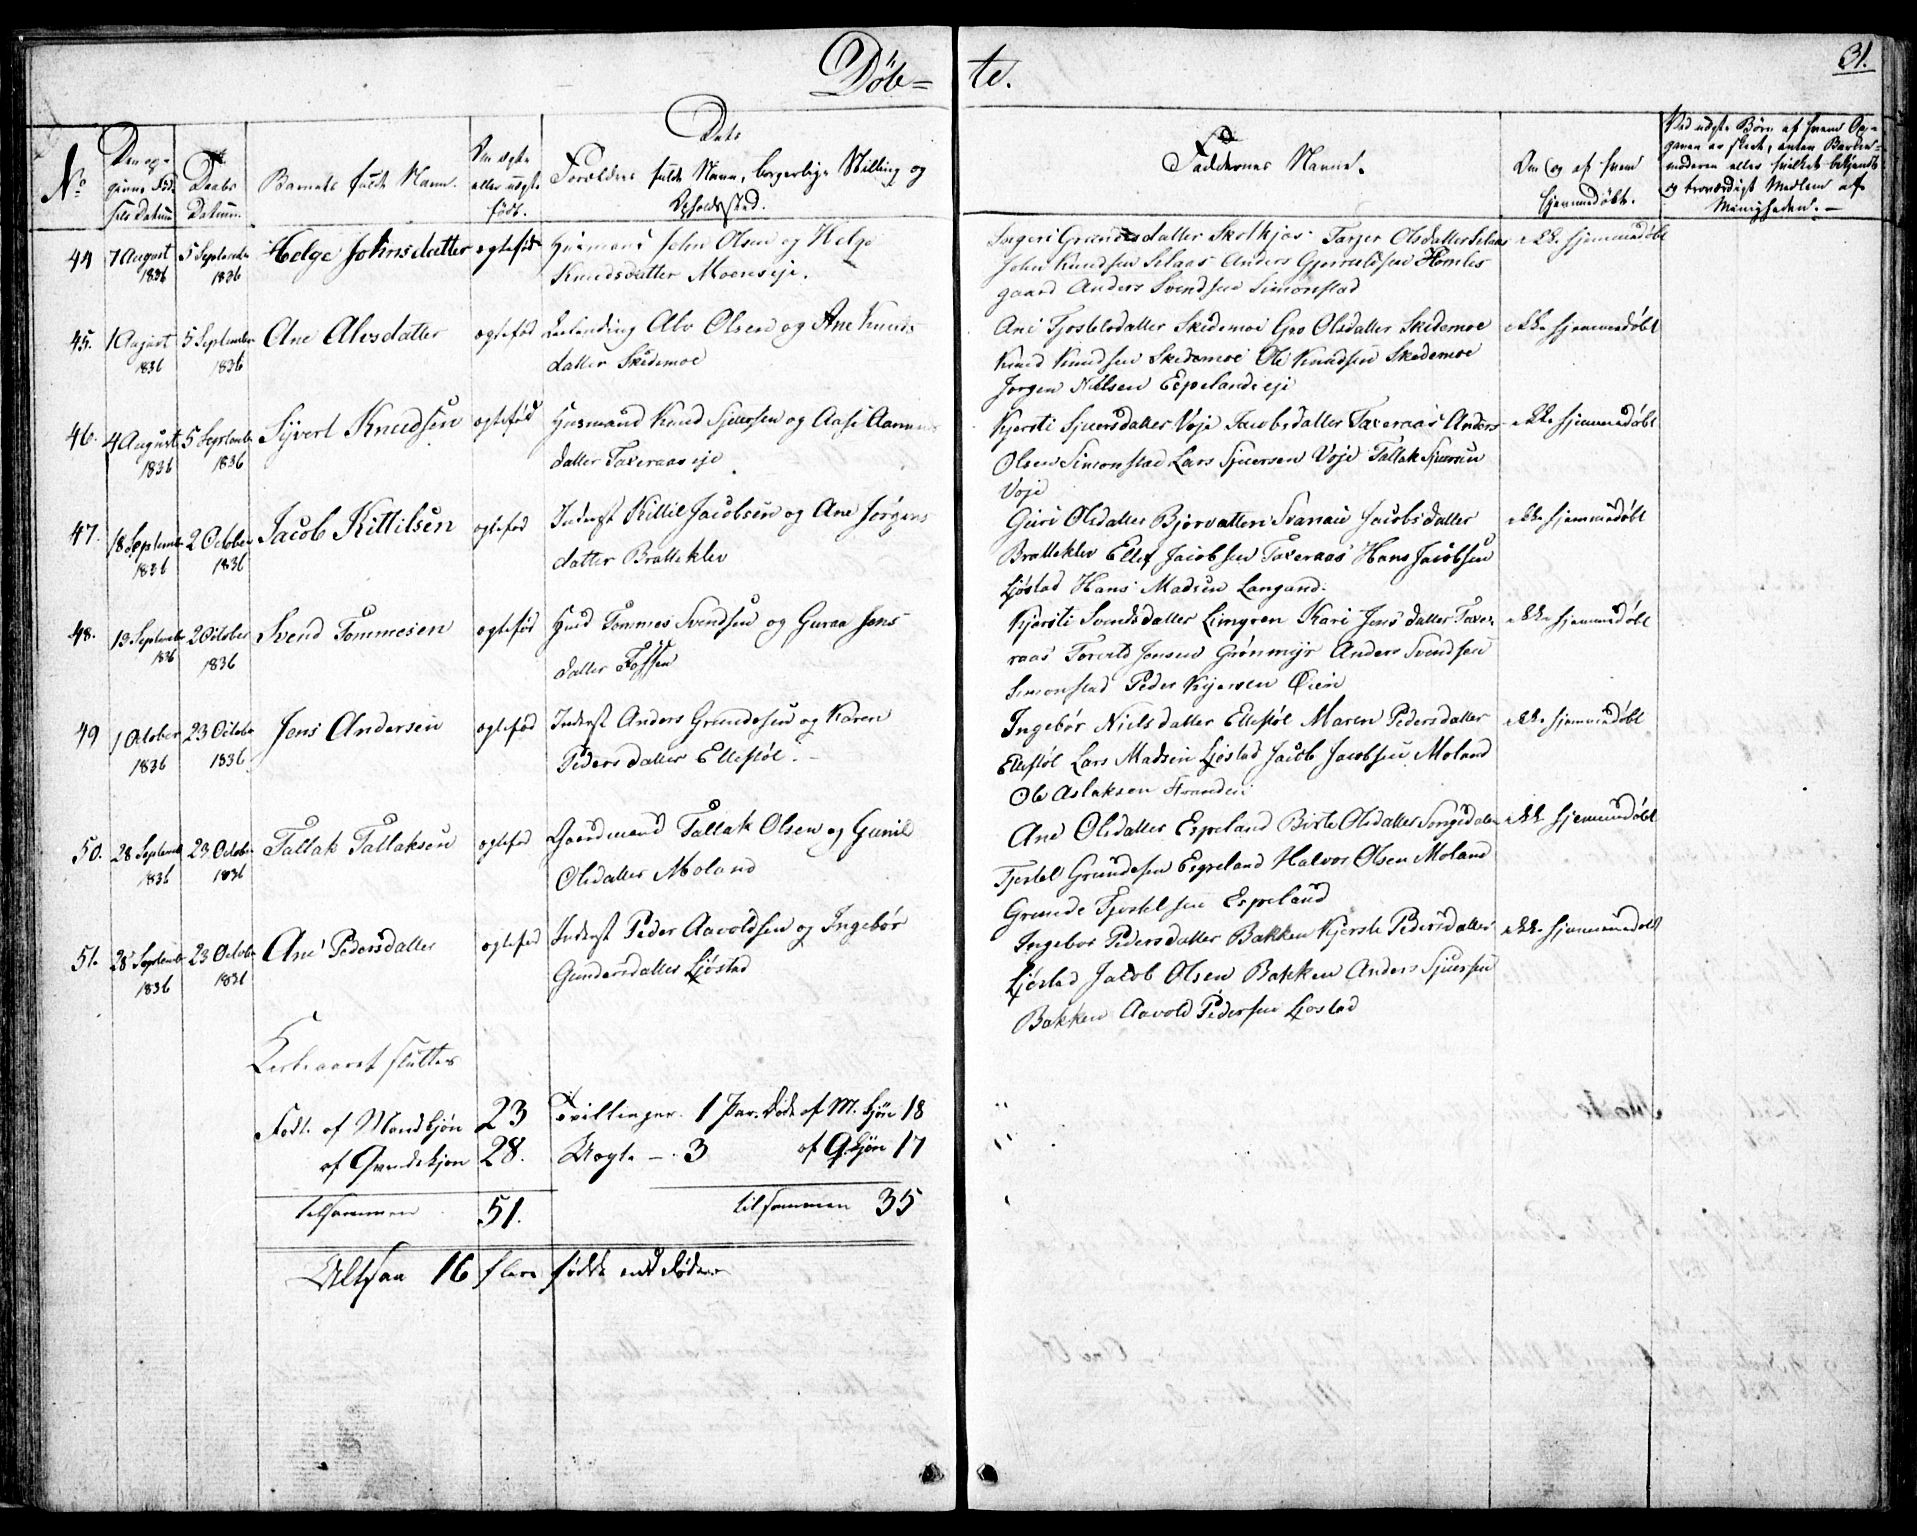 Døb=
te.
31.
No
Den eg-
Daabs
Datum.
Barnets fulde Navn.
Om ægte
eller uægte
født.
Dets
Forældres fulde Navn, borgerlige Stilling og
Opholdssted.
Faddernes Navne.
Om og af hvem
hjemmedøbt.
Ved uægte Børn af hvem Op-
gaven er skeet, enten Barne-
moderen eller hvilket bekjendt
og troværdigt Medlem af
Menigheden. —
44
7 August
1836
5 September
1836
Helge Johnsdatter
ægtefød
Huusmand John Olsen og Helge
Knudsdatter Moenseje.
Ingeri Grundesdatter Skolkjær Tarjer Olsdatter Selaas
John Knudsen Selaas Anders Gjermulsen Homles
gaard Anders Svendsen Simonstad
ikke hjemmedøbt
45.
1 August
1836
5 September
1836
Ane Alvsdatter
ægtefød
Leilending Alv Olsen og Ane Knuds
datter Skidemoe
Ane Tjostelsdatter Skidemoe Gro Olsdatter Skidemoe
Knud Knudsen Skidemoe Ole Knudsen Skedemoe
Jørgen Nielsen Espelandseje
ikke hjemmedøbt
46.
4 August
1836
5 September
1836
Sÿvert Knudsen
ægtefød
Huusmand Knud Sjursen og Aase Aanuns
datter Taxeraaseje
Kjersti Sjursdatter Voje Jacobsdatter Taxeraas Anders
Olsen Simonstad Lars Sjursen Voje Tallak Sjursen
Voje
ikke hjemmedøbt
47.
18 September
1836
2 October
1836
Jacob Kittilsen
ægtefød
Inderst Kittil Jacobsen og Ane Jørgens
datter Bratteklev
Guri Olsdatter Bjørvatten Svanau Jacobsdatter
Bratteklev Ellef Jacobsen Taxeraas Hans Jacobsen
Ljøstad Hans Madsen Langand.
ikke hjemmedøbt
48.
13 September
1836
2 October
1836
Svend Tommesen
ægtefød
Huusmd Tommes Svendsen og Guraa Jens
datter Fossen
Kjersti Svendsdatter Limgren Kari Jensdatter Taxe-
raas Torvild Jensen Grønmyr Anders Svendsen
Simonstad Peder Kjersen Øien
ikke hjemmedøbt
49
1 October
1836
23 October
1836
Jens Andersen
ægtefød
Inderst Anders Grundesen og Karen
Pedersdatter Ellestøl. —
Ingebør Nielsdatter Ellestøl Maren Pedersdatter
Ellestøl Lars Madsen Ljøstad Jacob Jacobsen Moland
Ole Aslaksen Stranden
ikke hjemmedøbt
50.
28 September
1836
23 October
1836
Tallak Tallaksen
ægtefød
Gaardmand Tallak Olsen og Gunild
Olsdatter Moland
Ane Olsdatter Espeland Birte Olsdatter Songedalen
Tjøstel Grundesen Espeland Halvor Olsen Moland
Grunde Tjostelsen Espeland
ikke hjemmedøbt
51.
28 September
1836
23 October
1836
Ane Pedersdatter
ægtefød
Inderst Peder Aavoldsen og Ingebør
Gundersdatter Ljøstad
Ingebor Pedersdatter Bakken Kjerste Pedersdatter
Ljøstad Jacob Olsen Bakken Anders Sjursen
Bakken Aavold Pedersen Ljostad
ikke hjemmedøbt
Kirkeaaret sluttes
Født af Mandkjøn 23 Tvillinger. 1 Par. Døde af M. Kjøn 18
af Qvindekjøn 28. Uægte —. 3 af Q. Kjøn 17
tilsammen 51. tilsammen 35
Altsaa 16 flere fødde end døde